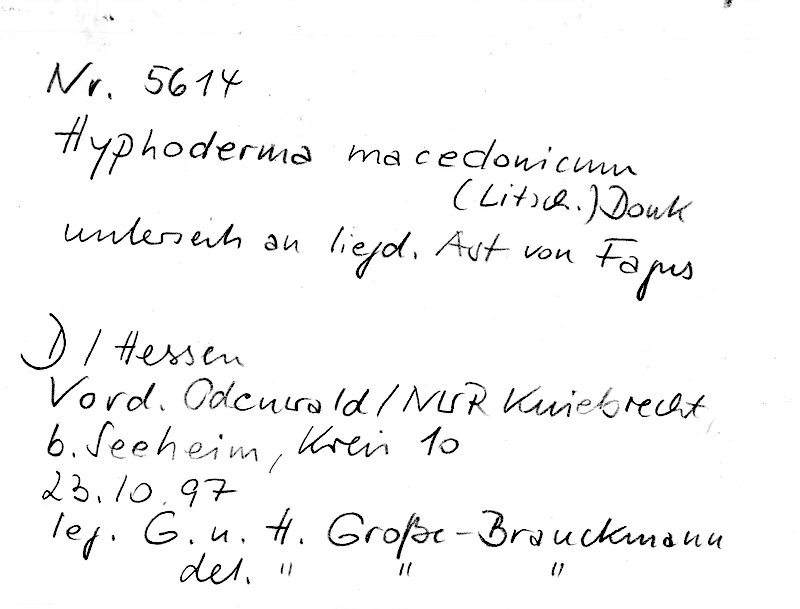 Nr. 5614
Hyphoderma macedonicum
(Litsch.) Donk
unterseits an liegd. Ast von Fagus
D / Hessen
Vord. Odenwald / NWR Kniebrecht
b. Seeheim, Kreis 10
23.10.97
leg. G. u. H. Große-Brauckmann
det. " " "